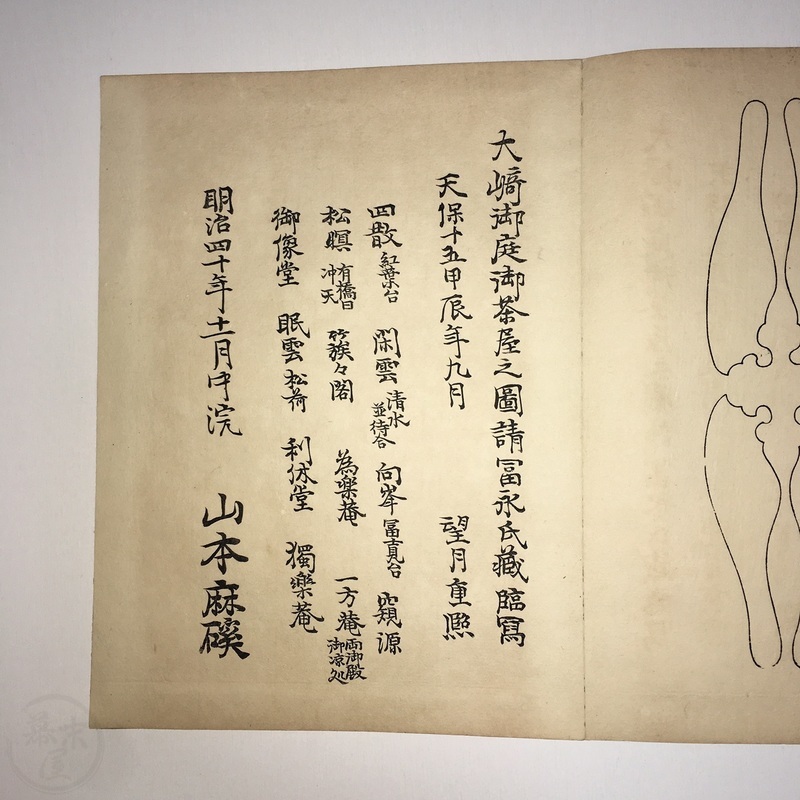 大﨑御庭御茶屋之圖請冨永氏藏臨冩
天保十五甲辰年九月 望月重熈
四散 紅葉台 閑雲 清水並待合 向峯 冨士見台 窺源
松瞑 有橋曰冲天 簇々閣 為楽菴 一方菴 両御殿御凉処
御像堂 眠雲 松荷 利休堂 獨楽菴
明治四十年十一月中浣 山本麻磎
幕末屋